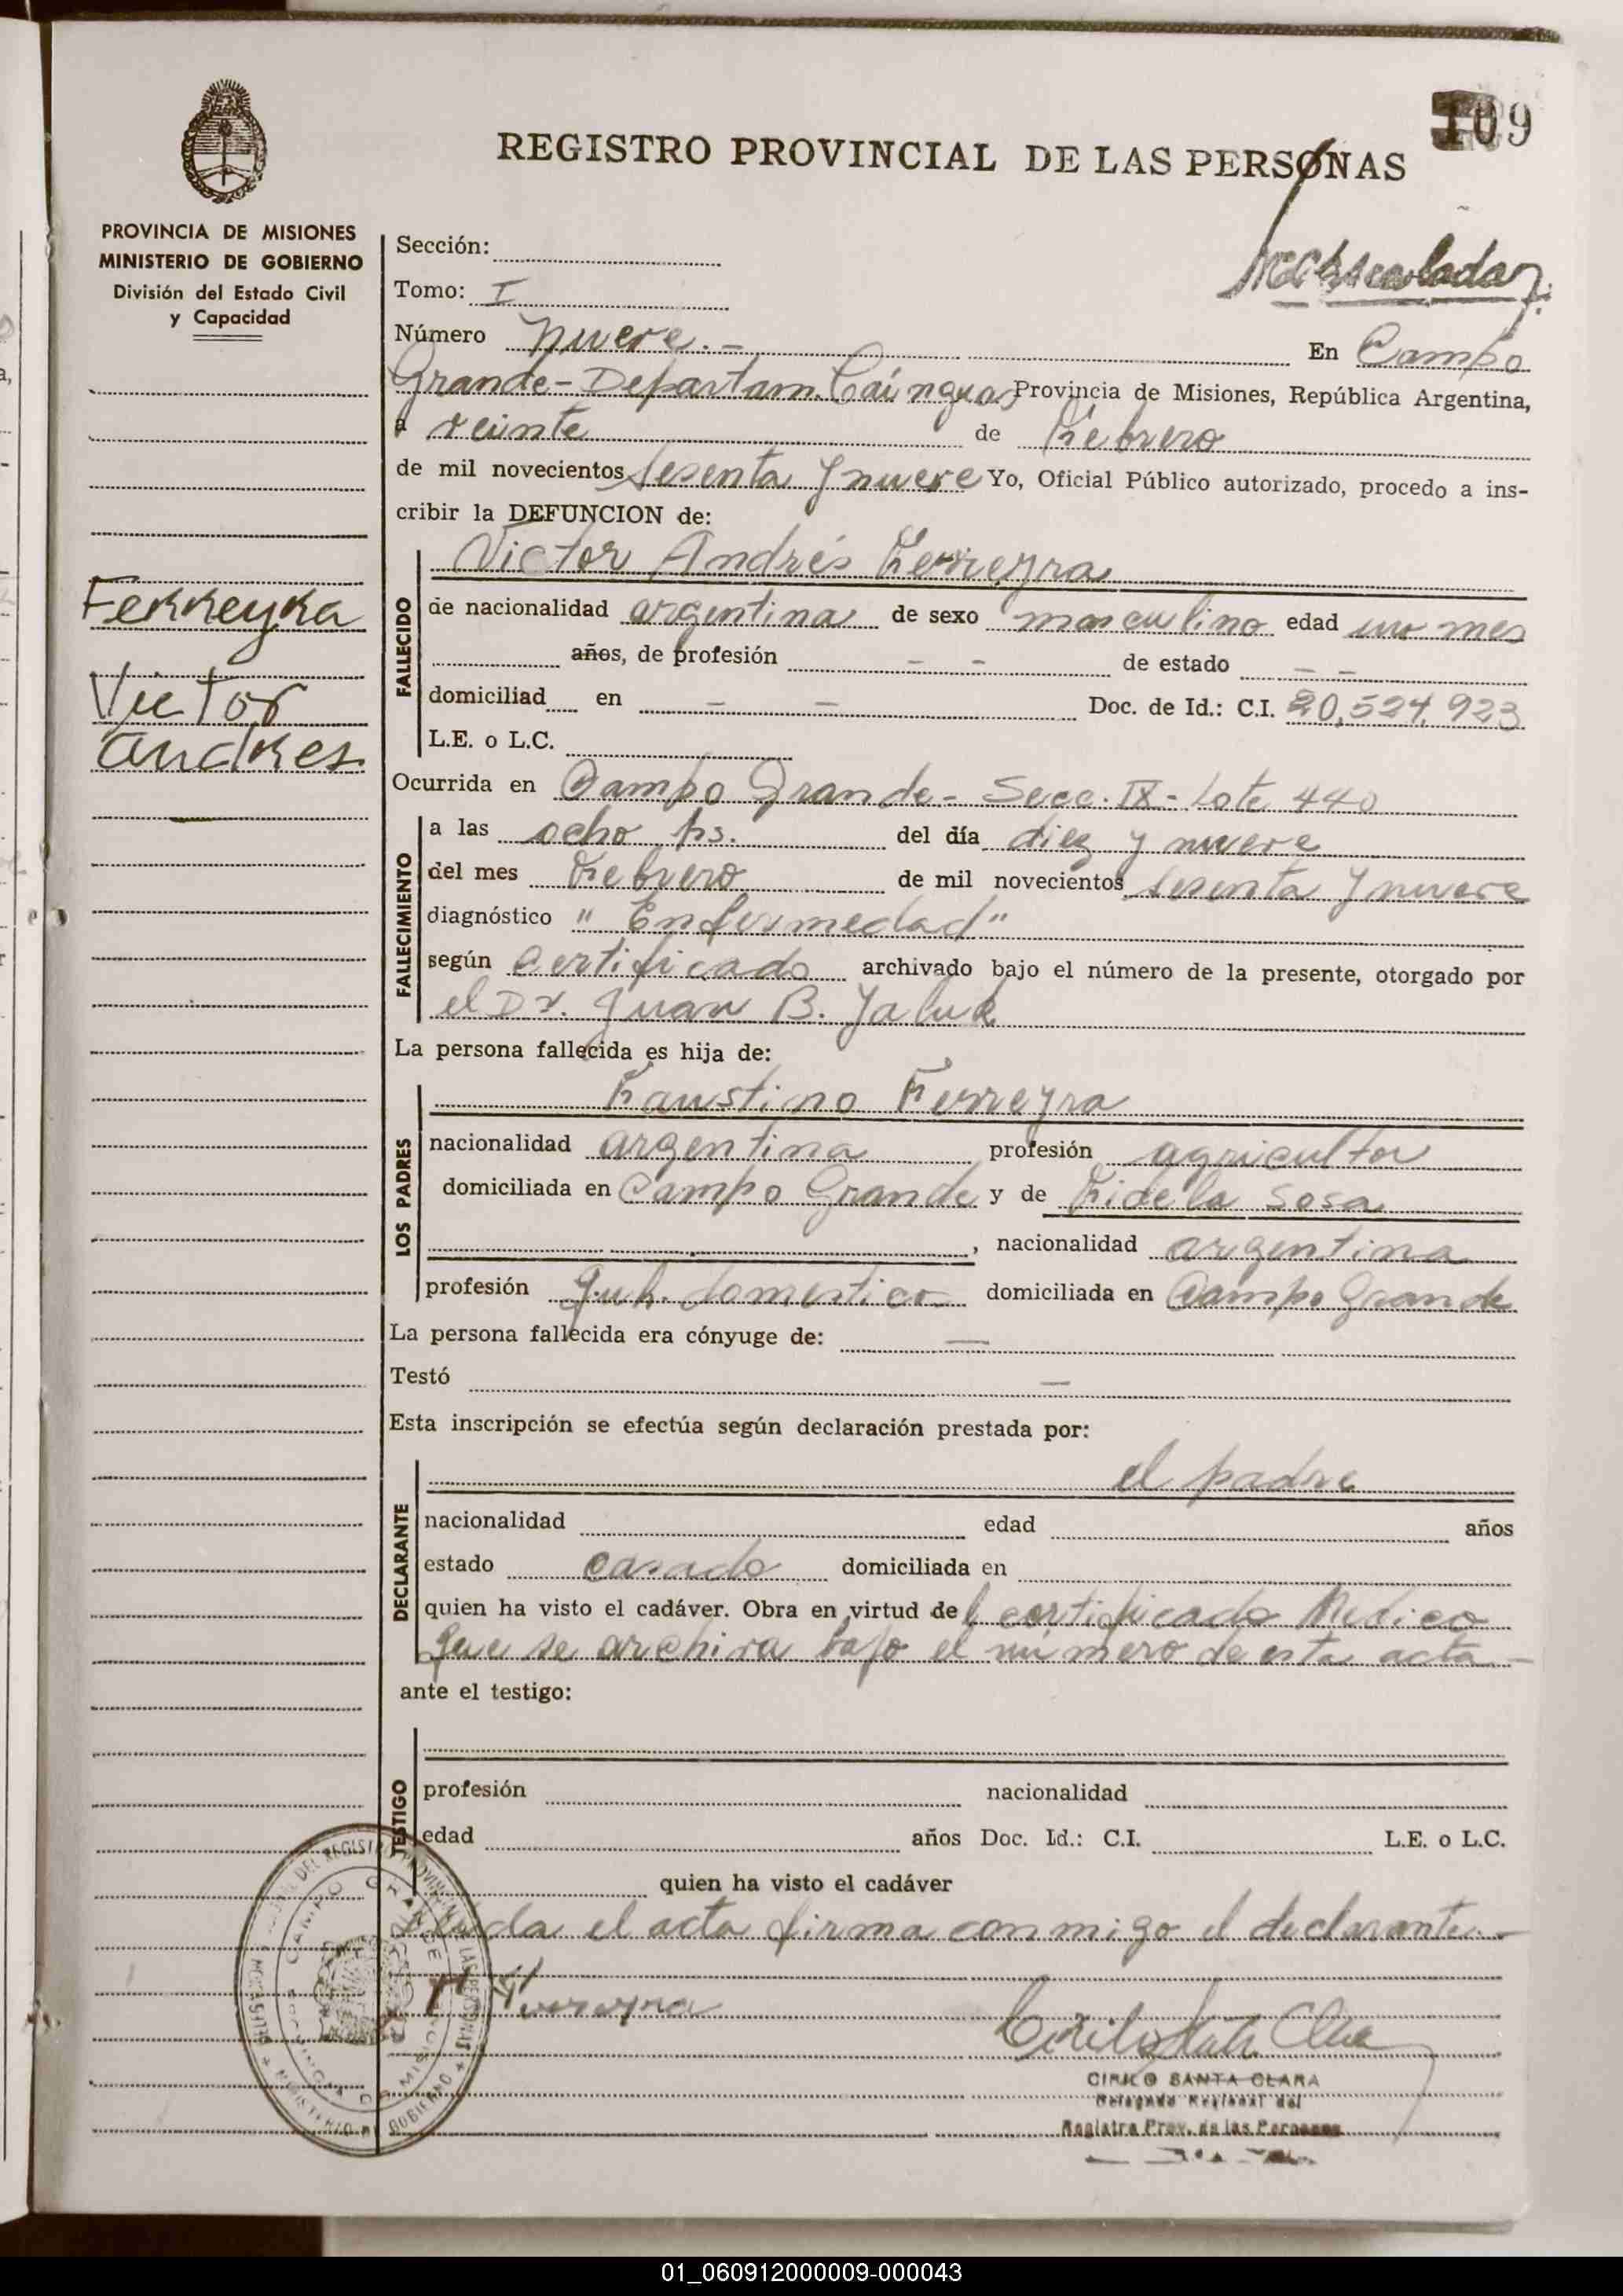 109
REGISTRO PROVINCIAL DE LAS PERSONAS
PROVINCIA DE MISIONES
MINISTERIO DE GOBIERNO
División del Estado Civil
y Capacidad
Sección:
Tomo: I
Número nueve.- En Campo
Grande - Departam. Cainguas Provincia de Misiones, República Argentina,
a veinte de Febrero
de mil novecientos sesenta y nueve Yo, Oficial Público autorizado, procedo a ins-
cribir la DEFUNCION de:
Victor Andrés Ferreyra
Ferreyra
Victor
Andres
FALLECIDO
de nacionalidad argentina de sexo masculino edad un mes
años, de profesión - - de estado - -
domiciliad en - - Doc. de Id.: C.I. 20.524.923
L.E. o L.C.
Ocurrida en Campo Grande - Secc. IX - Lote 440
FALLECIMIENTO
a las ocho hs. del día diez y nueve
del mes Febrero de mil novecientos sesenta y nueve
diagnóstico "Enfermedad"
según certificado archivado bajo el número de la presente, otorgado por
el Dr. Juan B. Yaluk
La persona fallecida es hija de:
LOS PADRES
Faustino Ferreyra
nacionalidad argentina profesión agricultor
domiciliada en Campo Grande y de Fidela Sosa
, nacionalidad argentina
profesión Queh. domestico domiciliada en Campo Grande
La persona fallecida era cónyuge de: —
Testó —
Esta inscripción se efectúa según declaración prestada por:
DECLARANTE
el padre
nacionalidad edad años
estado casado domiciliada en
quien ha visto el cadáver. Obra en virtud del certificado Medico
que se archiva bajo el número de esta acta -
ante el testigo:
TESTIGO
profesión nacionalidad
edad años Doc. Id.: C.I. L.E. o L.C.
quien ha visto el cadáver
Leida el acta firma conmigo el declarante.-
F Ferreyra
CIRILO SANTA CLARA
Delegado Regional del
Registro Prov. de las Personas
CAMPO GRANDE
MINISTERIO DE GOBIERNO
01_060912000009-000043